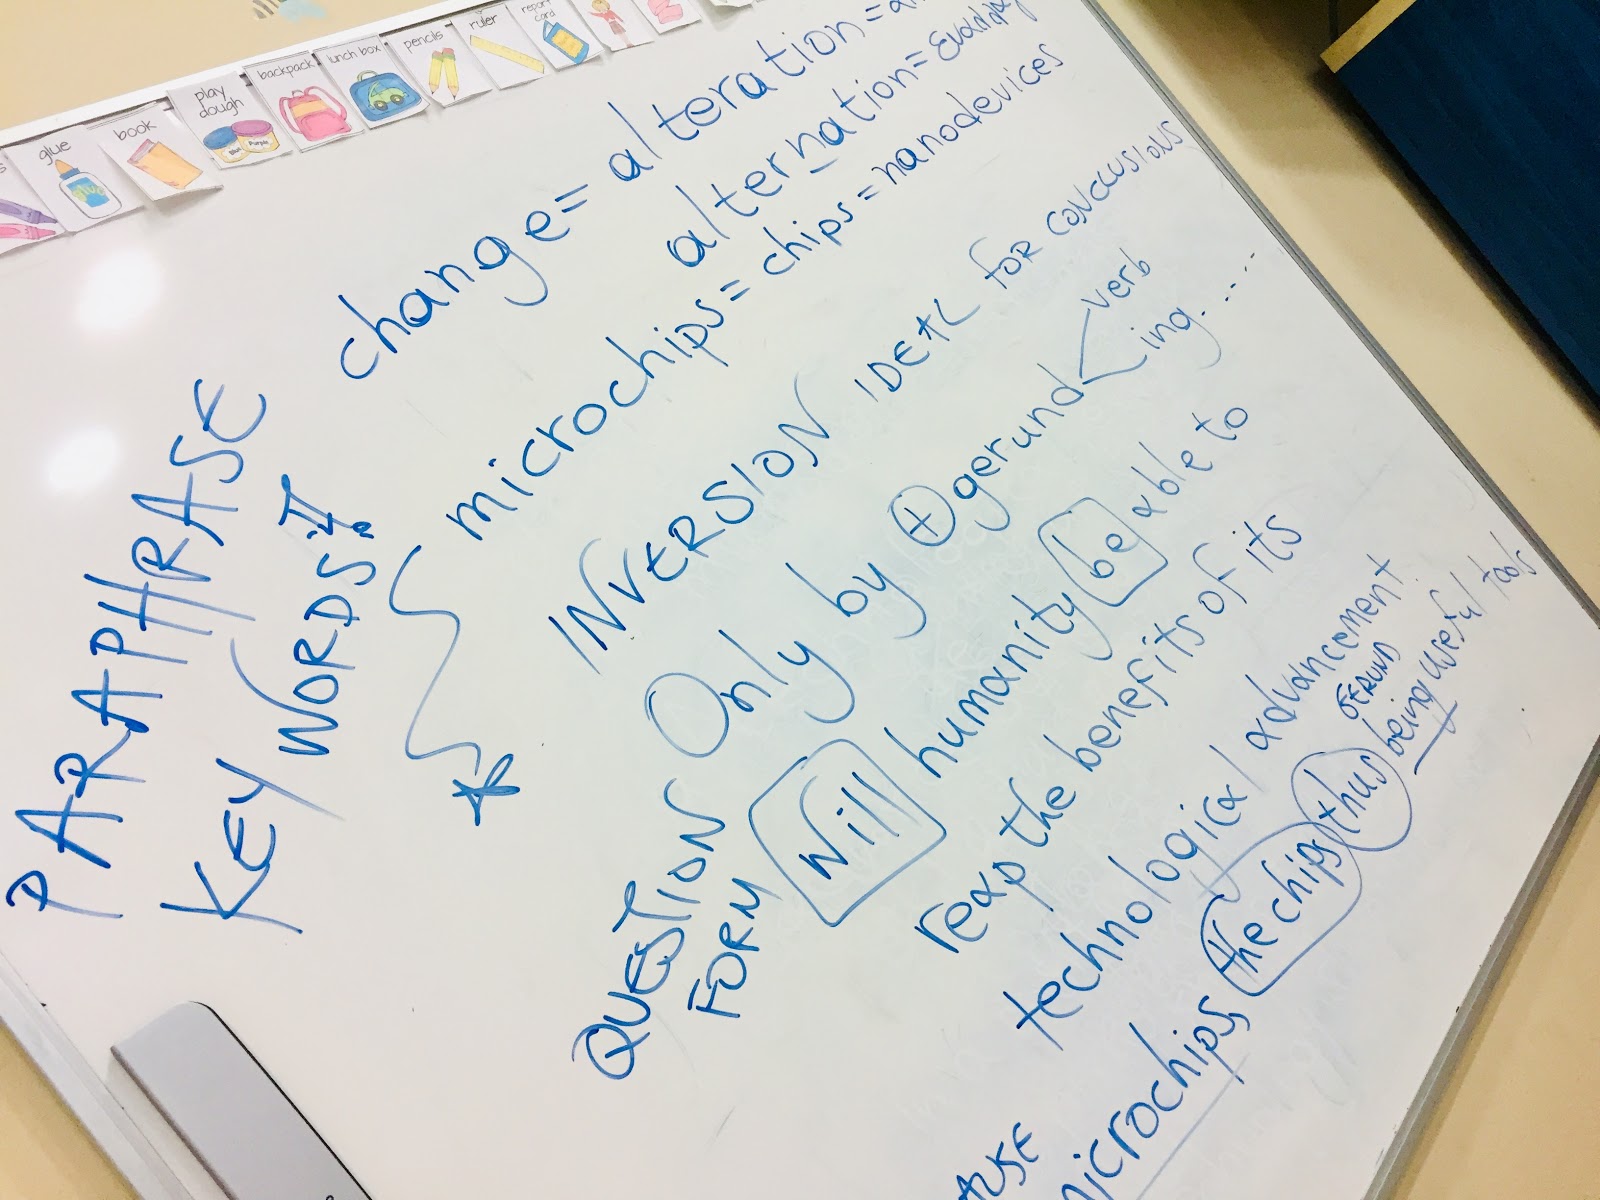 glue
glue
book
play
dough
Blue
Purple
backpack
lunch box
pencils
ruler
report
card
PARAPHRASE
KEY WORDS!!
change = alteration =
alternation =
microchips = chips = nanodevices
INVERSION IDEAL FOR CONCLUSIONS
Only by + gerund verb
ing.....
QUESTION
FORM
will humanity be able to
reap the benefits of its
technological advancement
microchips, the chips thus being useful tools
GERUND